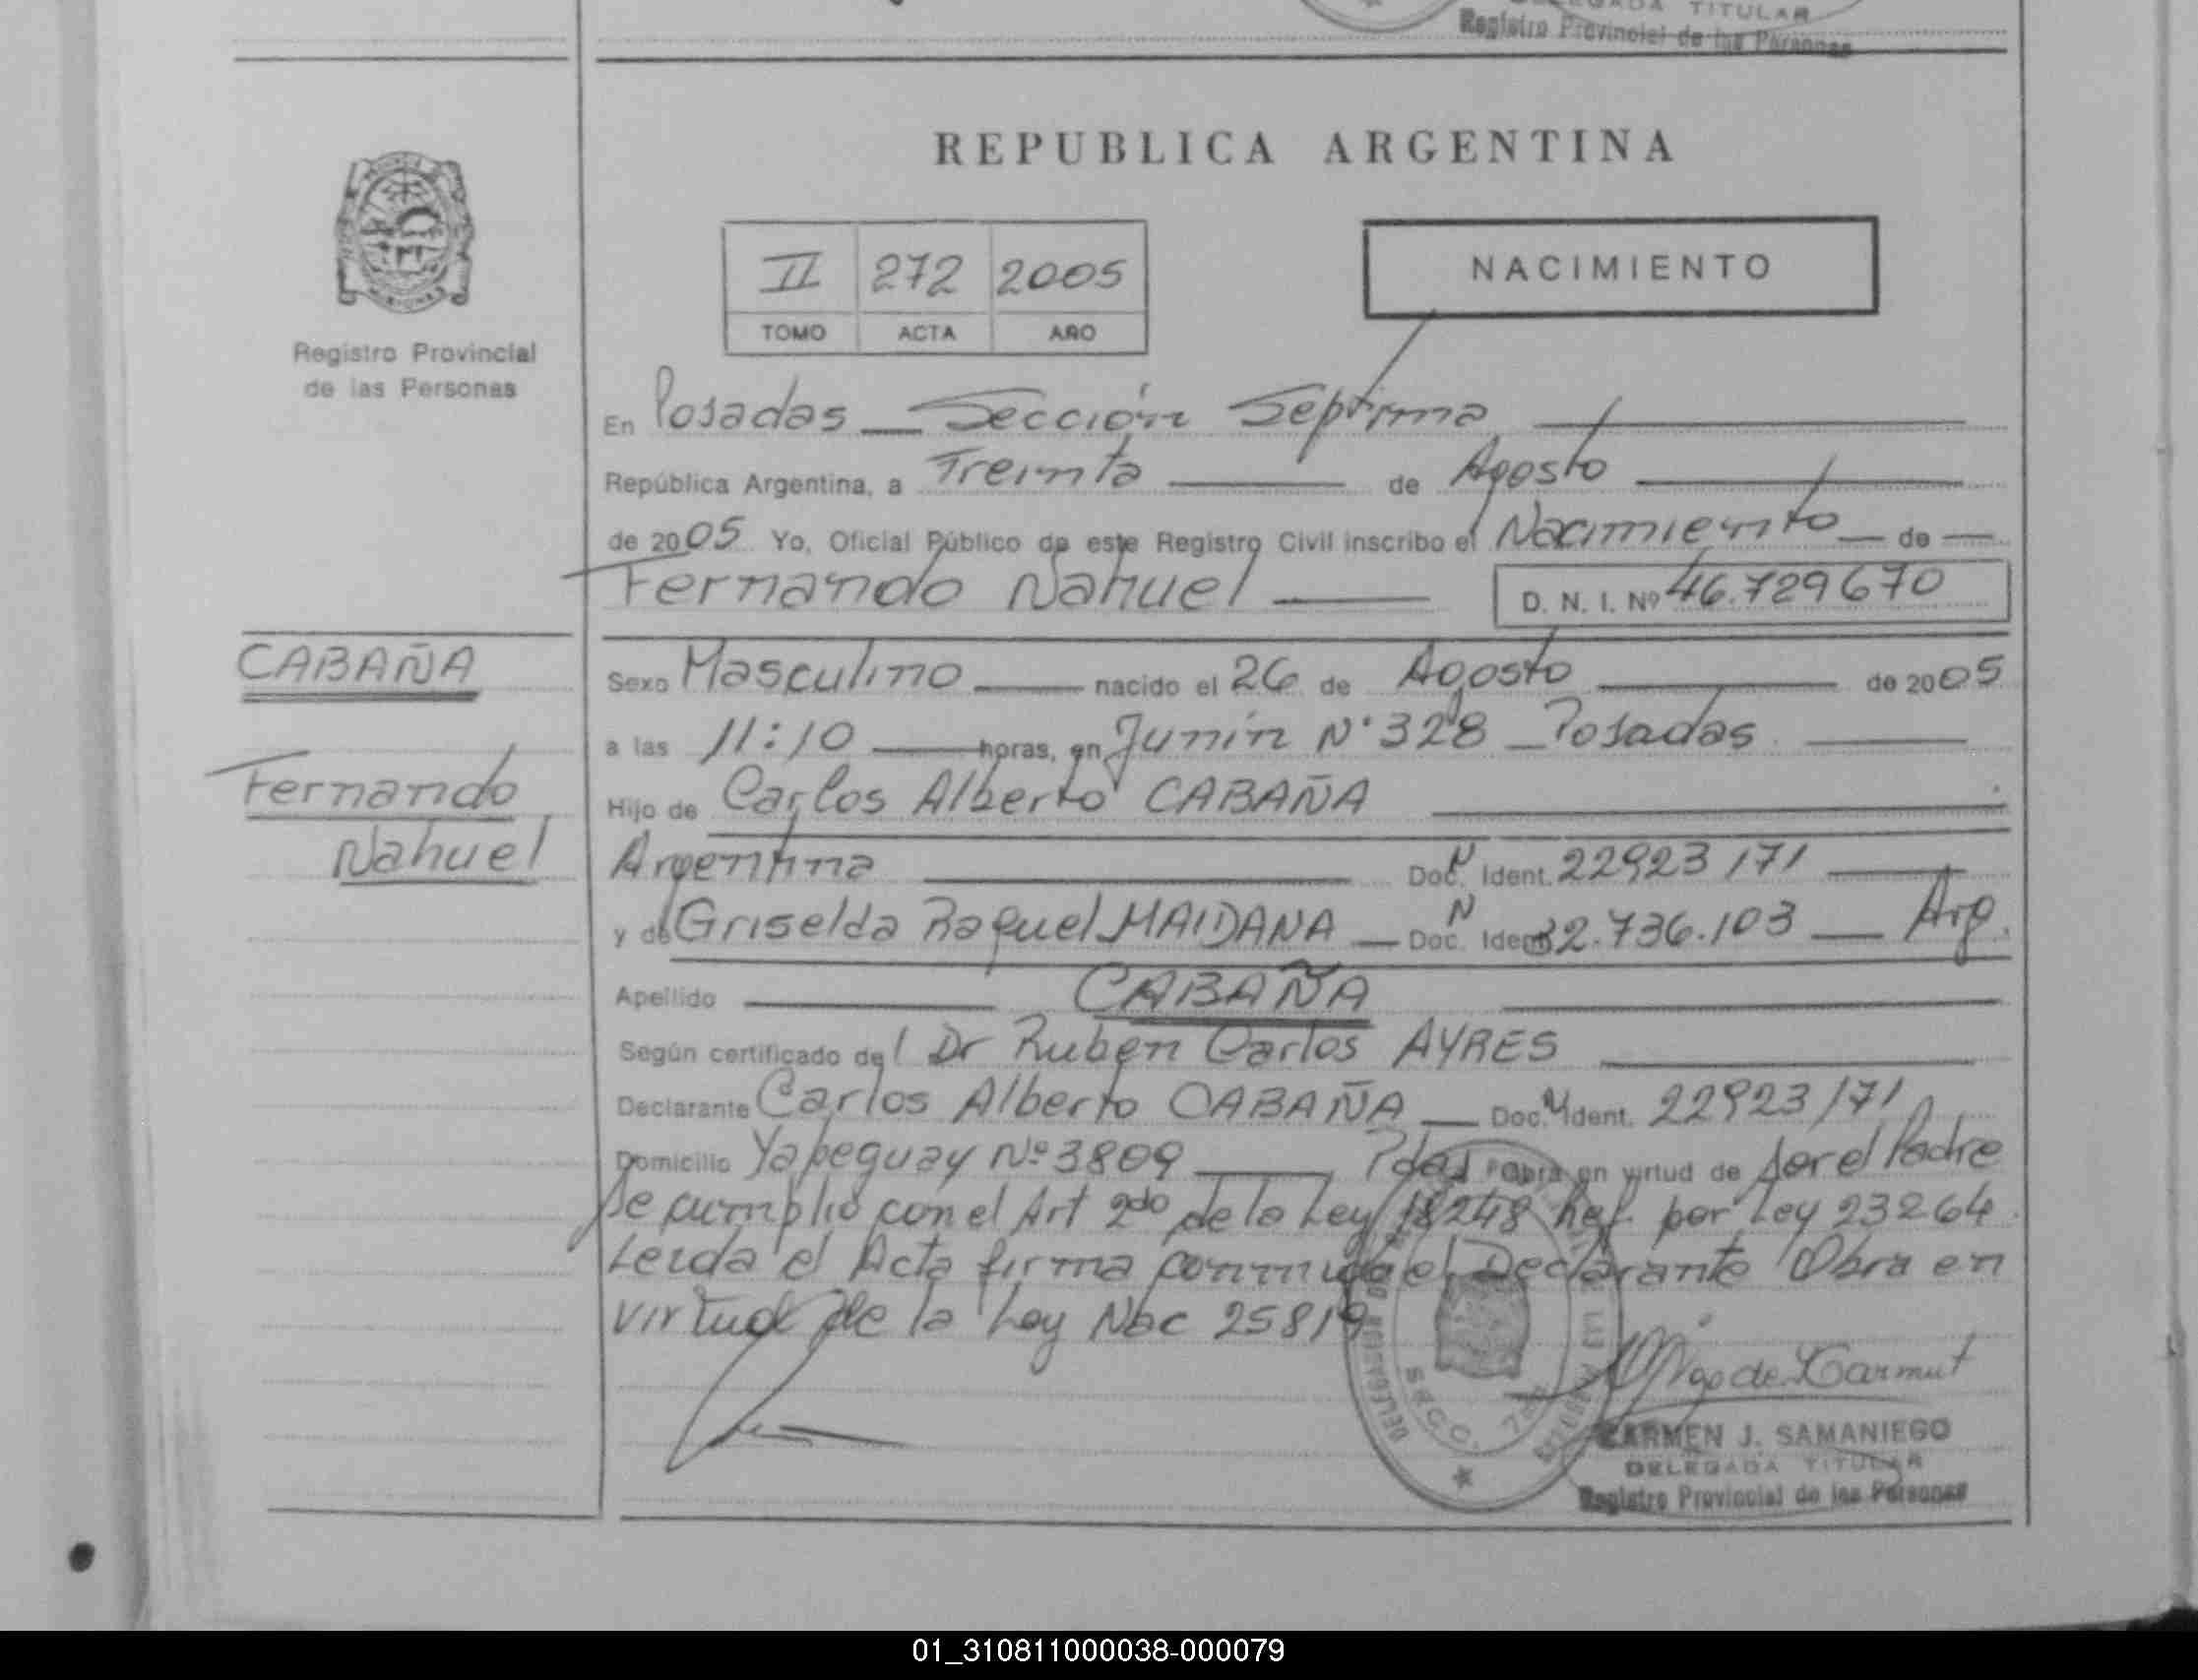 TITULAR
Registro Provincial de las Personas
REPUBLICA ARGENTINA
II 272 2005
TOMO ACTA AÑO
NACIMIENTO
Registro Provincial
de las Personas
En Posadas — Sección Septima
República Argentina, a Treinta de Agosto
de 2005 Yo, Oficial Público de este Registro Civil inscribo el Nacimiento de
Fernando Nahuel D. N. I. Nº 46.729670
CABAÑA
Fernando
Nahuel
Sexo Masculino nacido el 26 de Agosto de 2005
a las 11:10 horas, en Junín N° 328 — Posadas
Hijo de Carlos Alberto CABAÑA
Argentina Doc. N Ident. 22923171
y de Griselda Raquel MAIDANA — Doc. N Ident. 32.736.103 — Arg.
Apellido CABAÑA
Según certificado del Dr Ruben Carlos AYRES
Declarante Carlos Alberto CABAÑA — Doc. N Ident. 22923171
Domicilio Yapeguay Nº 3809 Pdas Obra en virtud de ser el Padre
Se cumplió con el Art 2do de la Ley 18248 Ref. por Ley 23264
Leida el Acta firma conmigo el Declarante Obra en
virtud de la Ley Nac 25819
SECC. 7
CARMEN J. SAMANIEGO
DELEGADA TITULAR
Registro Provincial de las Personas
01_310811000038-000079